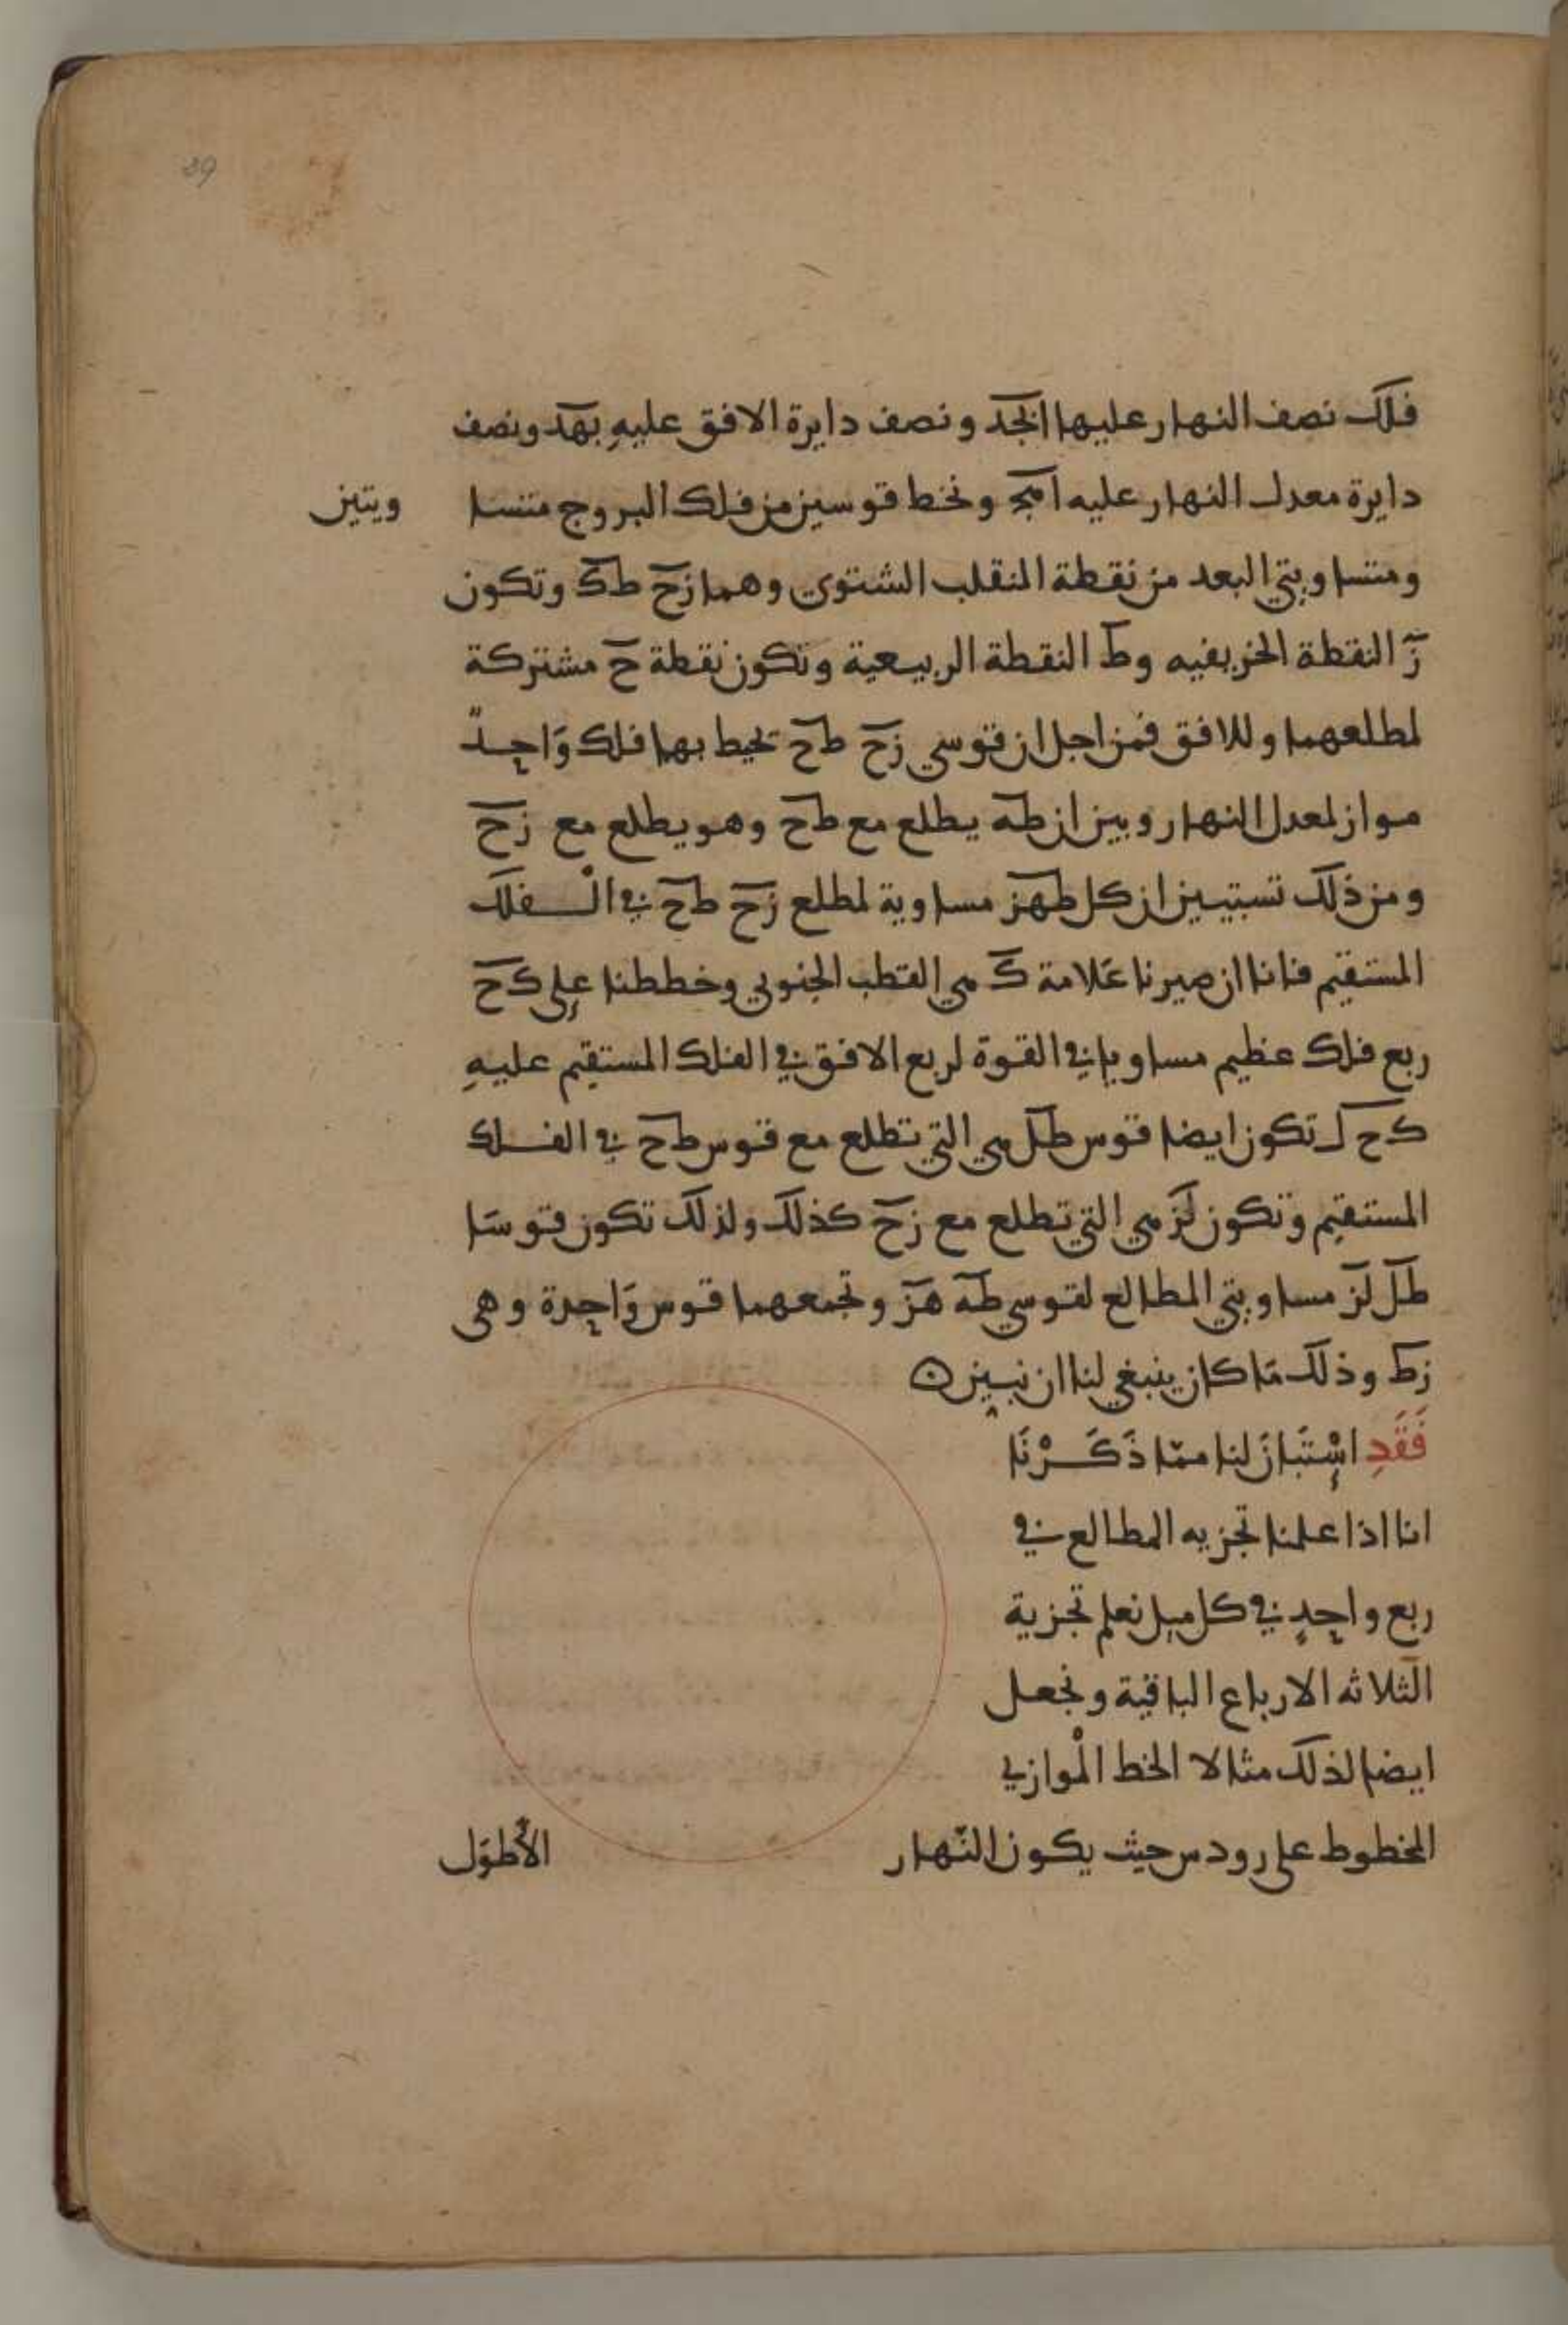 39
فلك نصف النهار عليها ابجد ونصف دايرة الافق عليهِ بهد ونصف
دايرة معدل النهار عليه اهج ونخط قوسين من فلك البروج متسا ويتين
ومتساويتي البعد من نقطة المنقلب الشتوي وهما زح طك وتكون
ز النقطة الخريفيه وط النقطة الربيعية وتكون نقطة ح مشتركة
لمطلعهما وللافق فمن اجل ان قوسي زح طح يحيط بهما فلك وَاحِدٌ
مواز لمعدل النهار وبين ان طه يطلع مع طح وهو يطلع مع زح
ومن ذلك تستبين ان كل طهز مساوية لمطلع زح طح في الْفلك
المستقيم فانا ان صيرنا عَلامة ك هي القطب الجنوبي وخططنا على كح
ربع فلك عظيم مساويا في القوة لربع الافق في الفلك المستقيم عليهِ
كح ل تكون ايضا قوس طل هي التي تطلع مع قوس طح في الفلك
المستقيم وتكون لز هي التي تطلع مع زح كذلك ولذلك تكون قوسَا
طل لز مساويتي المطالع لقوسي طه هز وتجمعهما قوس وَاحِدة وهى
زط وذلك مَا كان ينبغي لنا ان نبين ه
فَقَدِ اسْتَبَانَ لنا ممّا ذَكَرْنَا
انا اذا علمنا تجزيه المطالع في
ربع واحِدٍ في كل ميل نعلم تجزية
الثلاثه الارباع الباقية ونجعل
ايضا لذلك مثالا الخط الْموازي
المخطوط على رودس حيث يكون النّهار الأطوَل